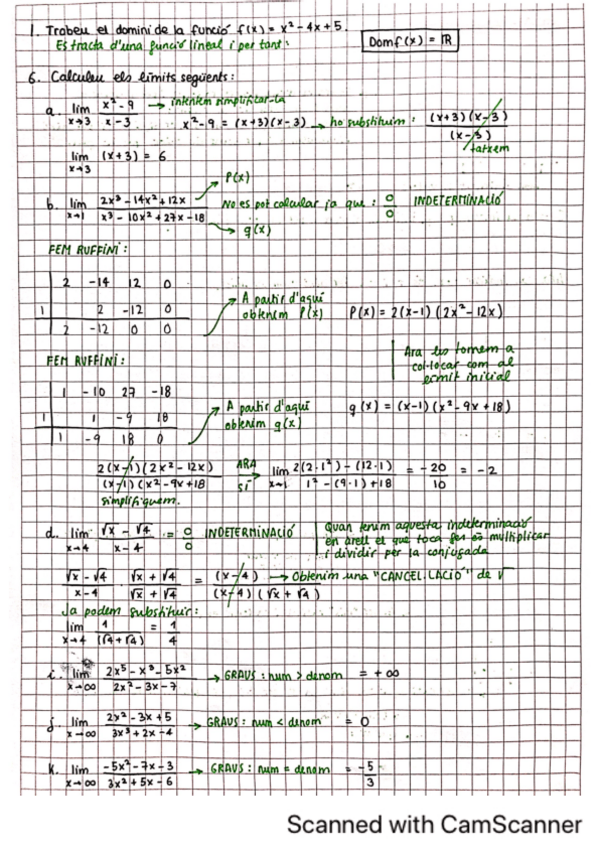 1. Trobeu el domini de la funció f(x) = x² - 4x + 5.
Es tracta d'una funció lineal i per tant: Dom f(x) = ℝ
6. Calculeu els límits següents:
a. lim x→3 (x² - 9)/(x - 3) → intentem simplificar-la
x² - 9 = (x+3)(x-3) → ho substituim: (x+3)(x-3)/(x-3) tatxem
lim x→3 (x+3) = 6
b. lim x→1 (2x³ - 14x² + 12x)/(x³ - 10x² + 27x - 18) → P(x) → q(x) No es pot calcular ja que: 0/0 INDETERMINACIÓ
FEM RUFFINI:
2 -14 12 0
1 2 -12 0
2 -12 0 0
→ A partir d'aquí
obtenim P(x) P(x) = 2(x-1)(2x² - 12x)
FEM RUFFINI:
Ara les tornem a
col·locar com al
límit inicial
1 -10 27 -18
1 1 -9 18
1 -9 18 0
→ A partir d'aquí
obtenim q(x) q(x) = (x-1)(x² - 9x + 18)
2(x-1)(2x² - 12x)/(x-1)(x² - 9x + 18 ARA SÍ → lim x→1 2(2·1²) - (12·1)/1² - (9·1) + 18 = -20/10 = -2
simplifiquem.
d. lim x→4 (√x - √4)/(x - 4) = 0/0 INDETERMINACIÓ
Quan tenim aquesta indeterminació
en arrell el que toca fer és multiplicar
i dividir per la conjugada
(√x - √4)/(x - 4) · (√x + √4)/(√x + √4) = (x-4)/(x-4)(√x + √4) → Obtenim una "CANCEL·LACIÓ" de √
Ja podem substituir:
lim x→4 1/(√4 + √4) = 1/4
i. lim x→∞ (2x⁵ - x³ - 5x²)/(2x² - 3x - 7) → GRAUS: num > denom = +∞
j. lim x→∞ (2x² - 3x + 5)/(3x³ + 2x - 4) → GRAUS: num < denom = 0
k. lim x→∞ (-5x² - 7x - 3)/(3x² + 5x - 6) → GRAUS: num = denom = -5/3
Scanned with CamScanner